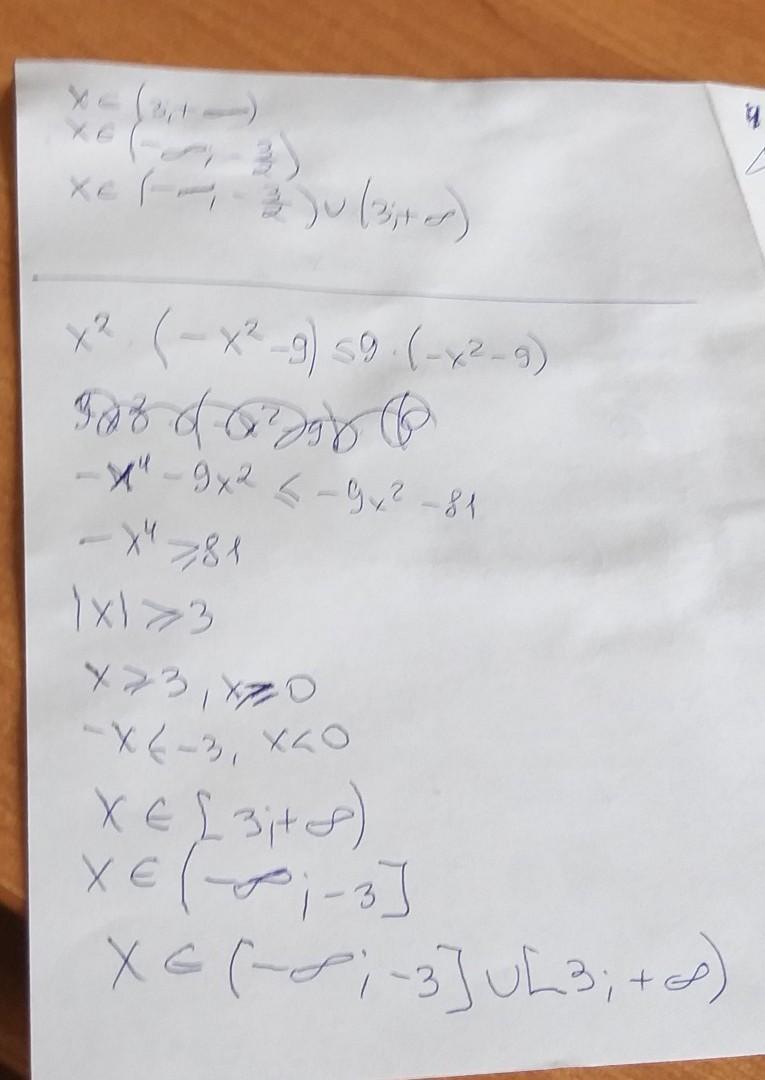 x ∈ (3; + ∞)
x ∈ (-∞; -3/2)
x ∈ (-∞; -3/2) ∪ (3; +∞)
x² · (-x² -9) ≤ 9 · (-x² - 9)
-x⁴ - 9x² ≤ -9x² -81
-x⁴ ≥ 81
|x| ≥ 3
x ≥ 3, x ≥ 0
-x ≤ -3, x < 0
x ∈ [3; +∞)
x ∈ (-∞; -3]
x ∈ (-∞; -3] ∪ [3; +∞)